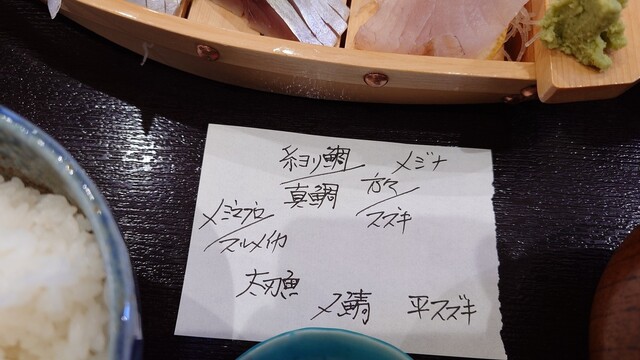 糸ヨリ鯛
メジナ
真鯛
カマス
スズキ
メジマグロ
スルメイカ
太刀魚
〆鯖
平スズキ